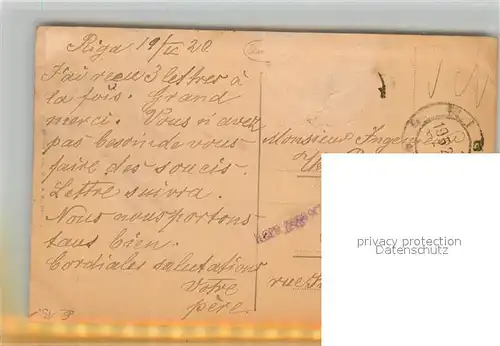 Riga 19/II 20
J'ai recu 3 lettres à
la fois. Grand
merci. Vous n'avez
pas besoin de vous
faire des soucis.
Lettre suivra.
Nous nous portons
tous bien.
Cordiales salutations
Votre
père.
Monsieur
rue
privacy protection
Datenschutz